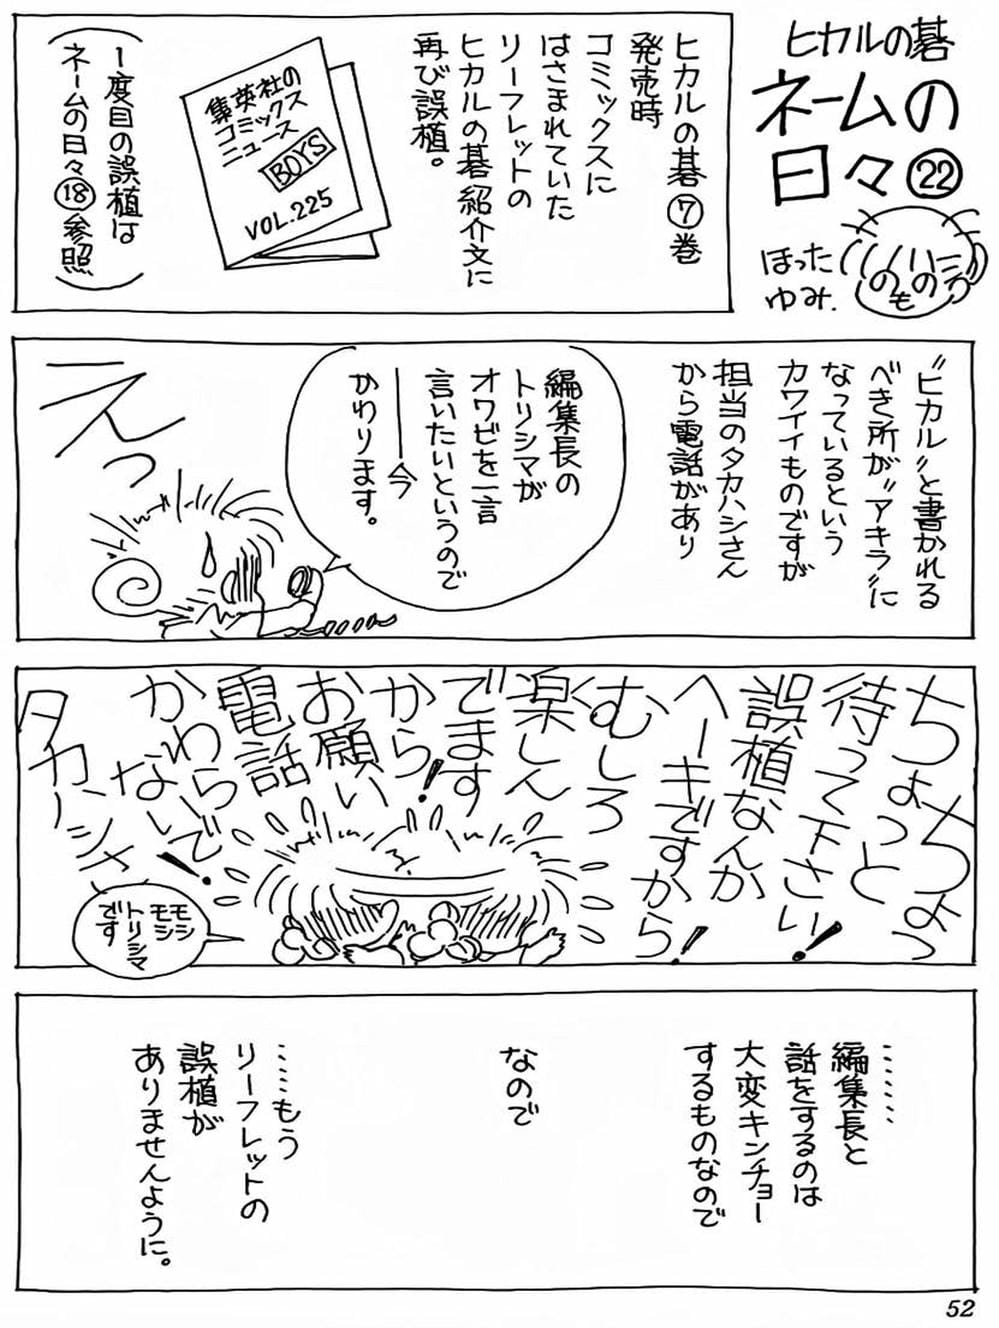 ヒカルの碁
ネームの
日々㉒
ほった
ゆみ.
ヒカルの碁⑦巻
発売時
コミックスに
はさまれていた
リーフレットの
ヒカルの碁紹介文に
再び誤植。
集英社の
コミックス
ニュース
BOYS
VOL.225
(1度目の誤植は
ネームの日々⑱参照)
〝ヒカル〟と書かれる
べき所が〝アキラ〟に
なっているという
カワイイものですが
担当のタカハシさん
から電話があり
編集長の
トリシマが
オワビを一言
言いたいというので
――今
かわります。
えっ
ちょっとちょっと
待って下さい!
誤植なんか
ヘーキですから!
むしろ
楽しん
でます
から!
お願い
電話
かわら
ないで!
タカハシさん
モシ
モシ
トリシマ
です
……
編集長と
話をするのは
大変キンチョー
するものなので
なので
……もう
リーフレットの
誤植が
ありませんように。
52